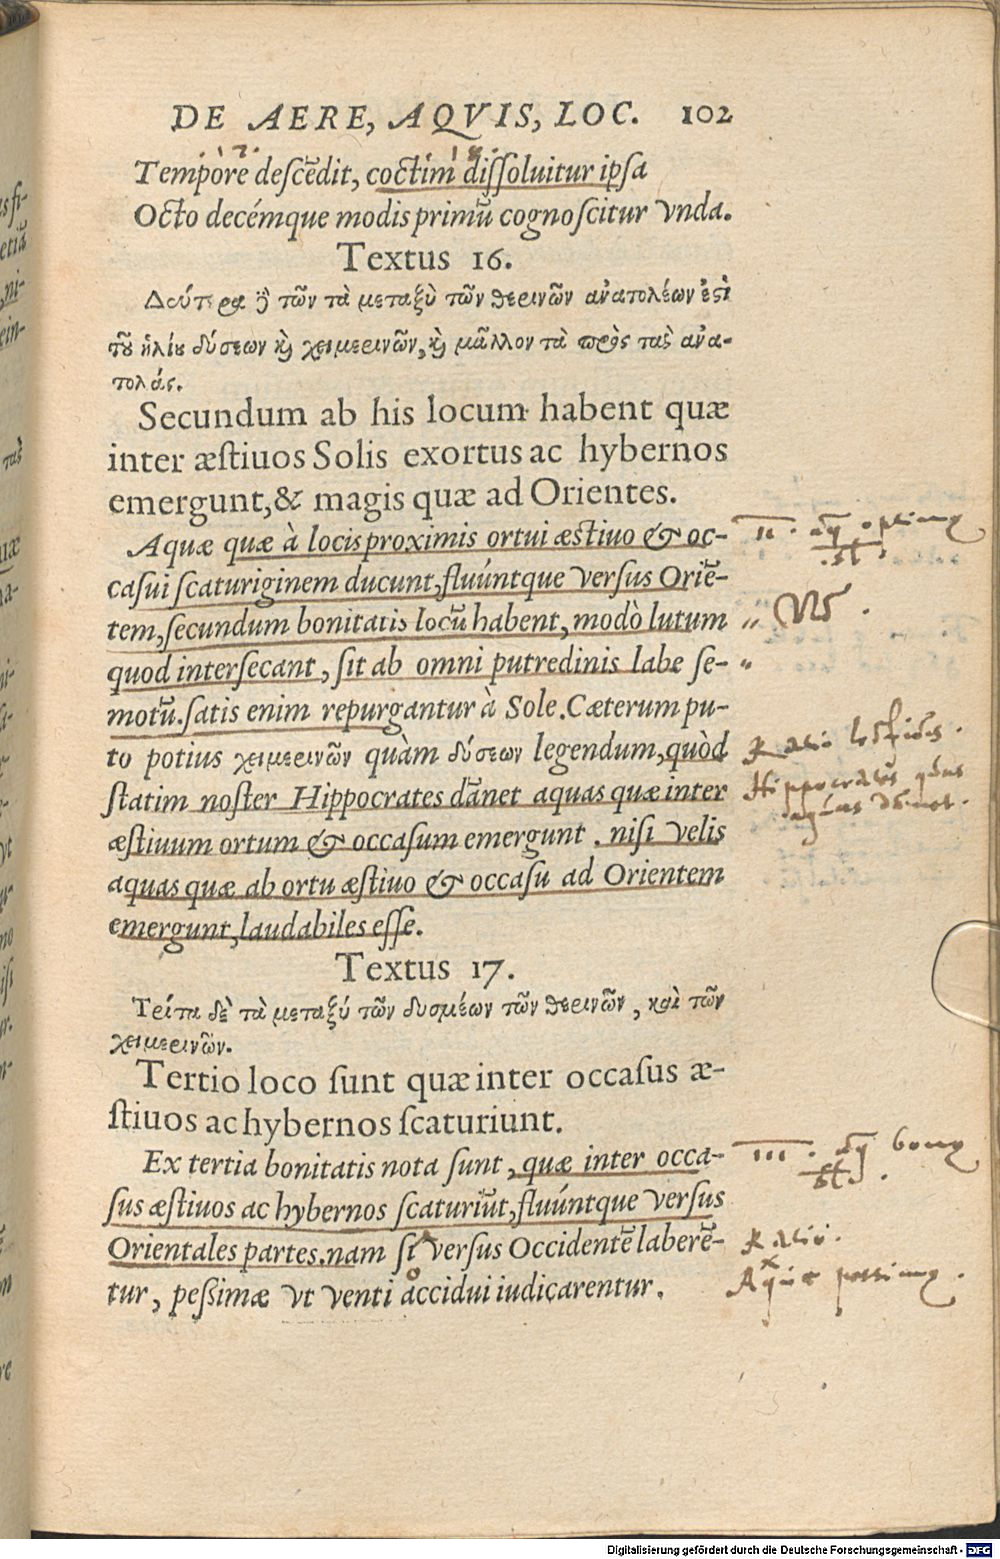 DE AERE, AQVIS, LOC. 102
. 17. 18.
Tempore descēdit, coctim dissoluitur ipsa
Octo decémque modis primū cognoscitur vnda.
Textus 16.
Δεύτερα δ̓ τῶν τὰ μεταξὺ τῶν θερινῶν ἀνατολέων ἐστὶ
τοῦ ἡλίου δύσεων καὶ χειμερινῶν, καὶ μᾶλλον τὰ πρὸς τὰς ἀνα-
τολάς.
Secundum ab his locum habent quæ
inter æstiuos Solis exortus ac hybernos
emergunt, & magis quæ ad Orientes.
Aquæ quæ à locis proximis ortui æstiuo & oc-
casui scaturiginem ducunt, fluúntque versus Oriē-
tem, secundum bonitatis locū habent, modò lutum
quod intersecant, sit ab omni putredinis labe se-
motū. satis enim repurgantur à Sole. Cæterum pu-
to potius χειμερινῶν quàm δύσεων legendum, quòd
statim noster Hippocrates dānet aquas quæ inter
æstiuum ortum & occasum emergunt. nisi velis
aquas quæ ab ortu æstiuo & occasu ad Orientem
emergunt, laudabiles esse.
Textus 17.
Τρίτα δὲ τὰ μεταξύ τῶν δυσμέων τῶν θερινῶν, καὶ τῶν
χειμερινῶν.
Tertio loco sunt quæ inter occasus æ-
stiuos ac hybernos scaturiunt.
Ex tertia bonitatis nota sunt, quæ inter occa-
sus æstiuos ac hybernos scaturiūt, fluúntque versus
Orientales partes. nam si versus Occidentē laberē-
tur, pessimæ vt venti occidui iudicarentur.
II.
Hippocrates
III.
Ratio.
Aquæ pessimæ.
Digitalisierung gefördert durch die Deutsche Forschungsgemeinschaft - DFG